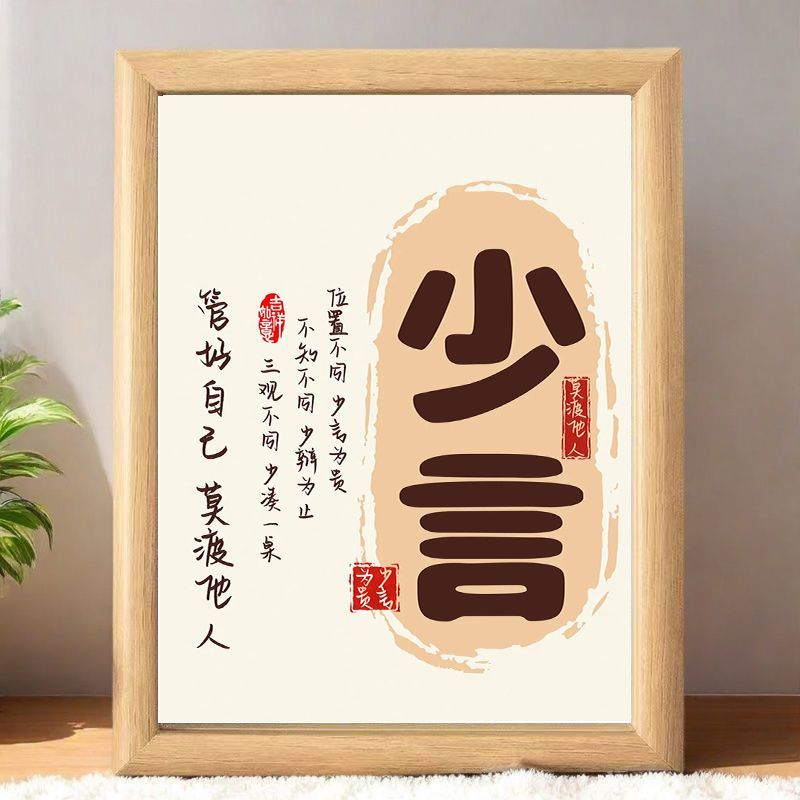 少言
莫渡他人
少言为贵
位置不同 少言为贵
不知不同 少辩为止
三观不同 少凑一桌
吉祥如意
管好自己 莫渡他人